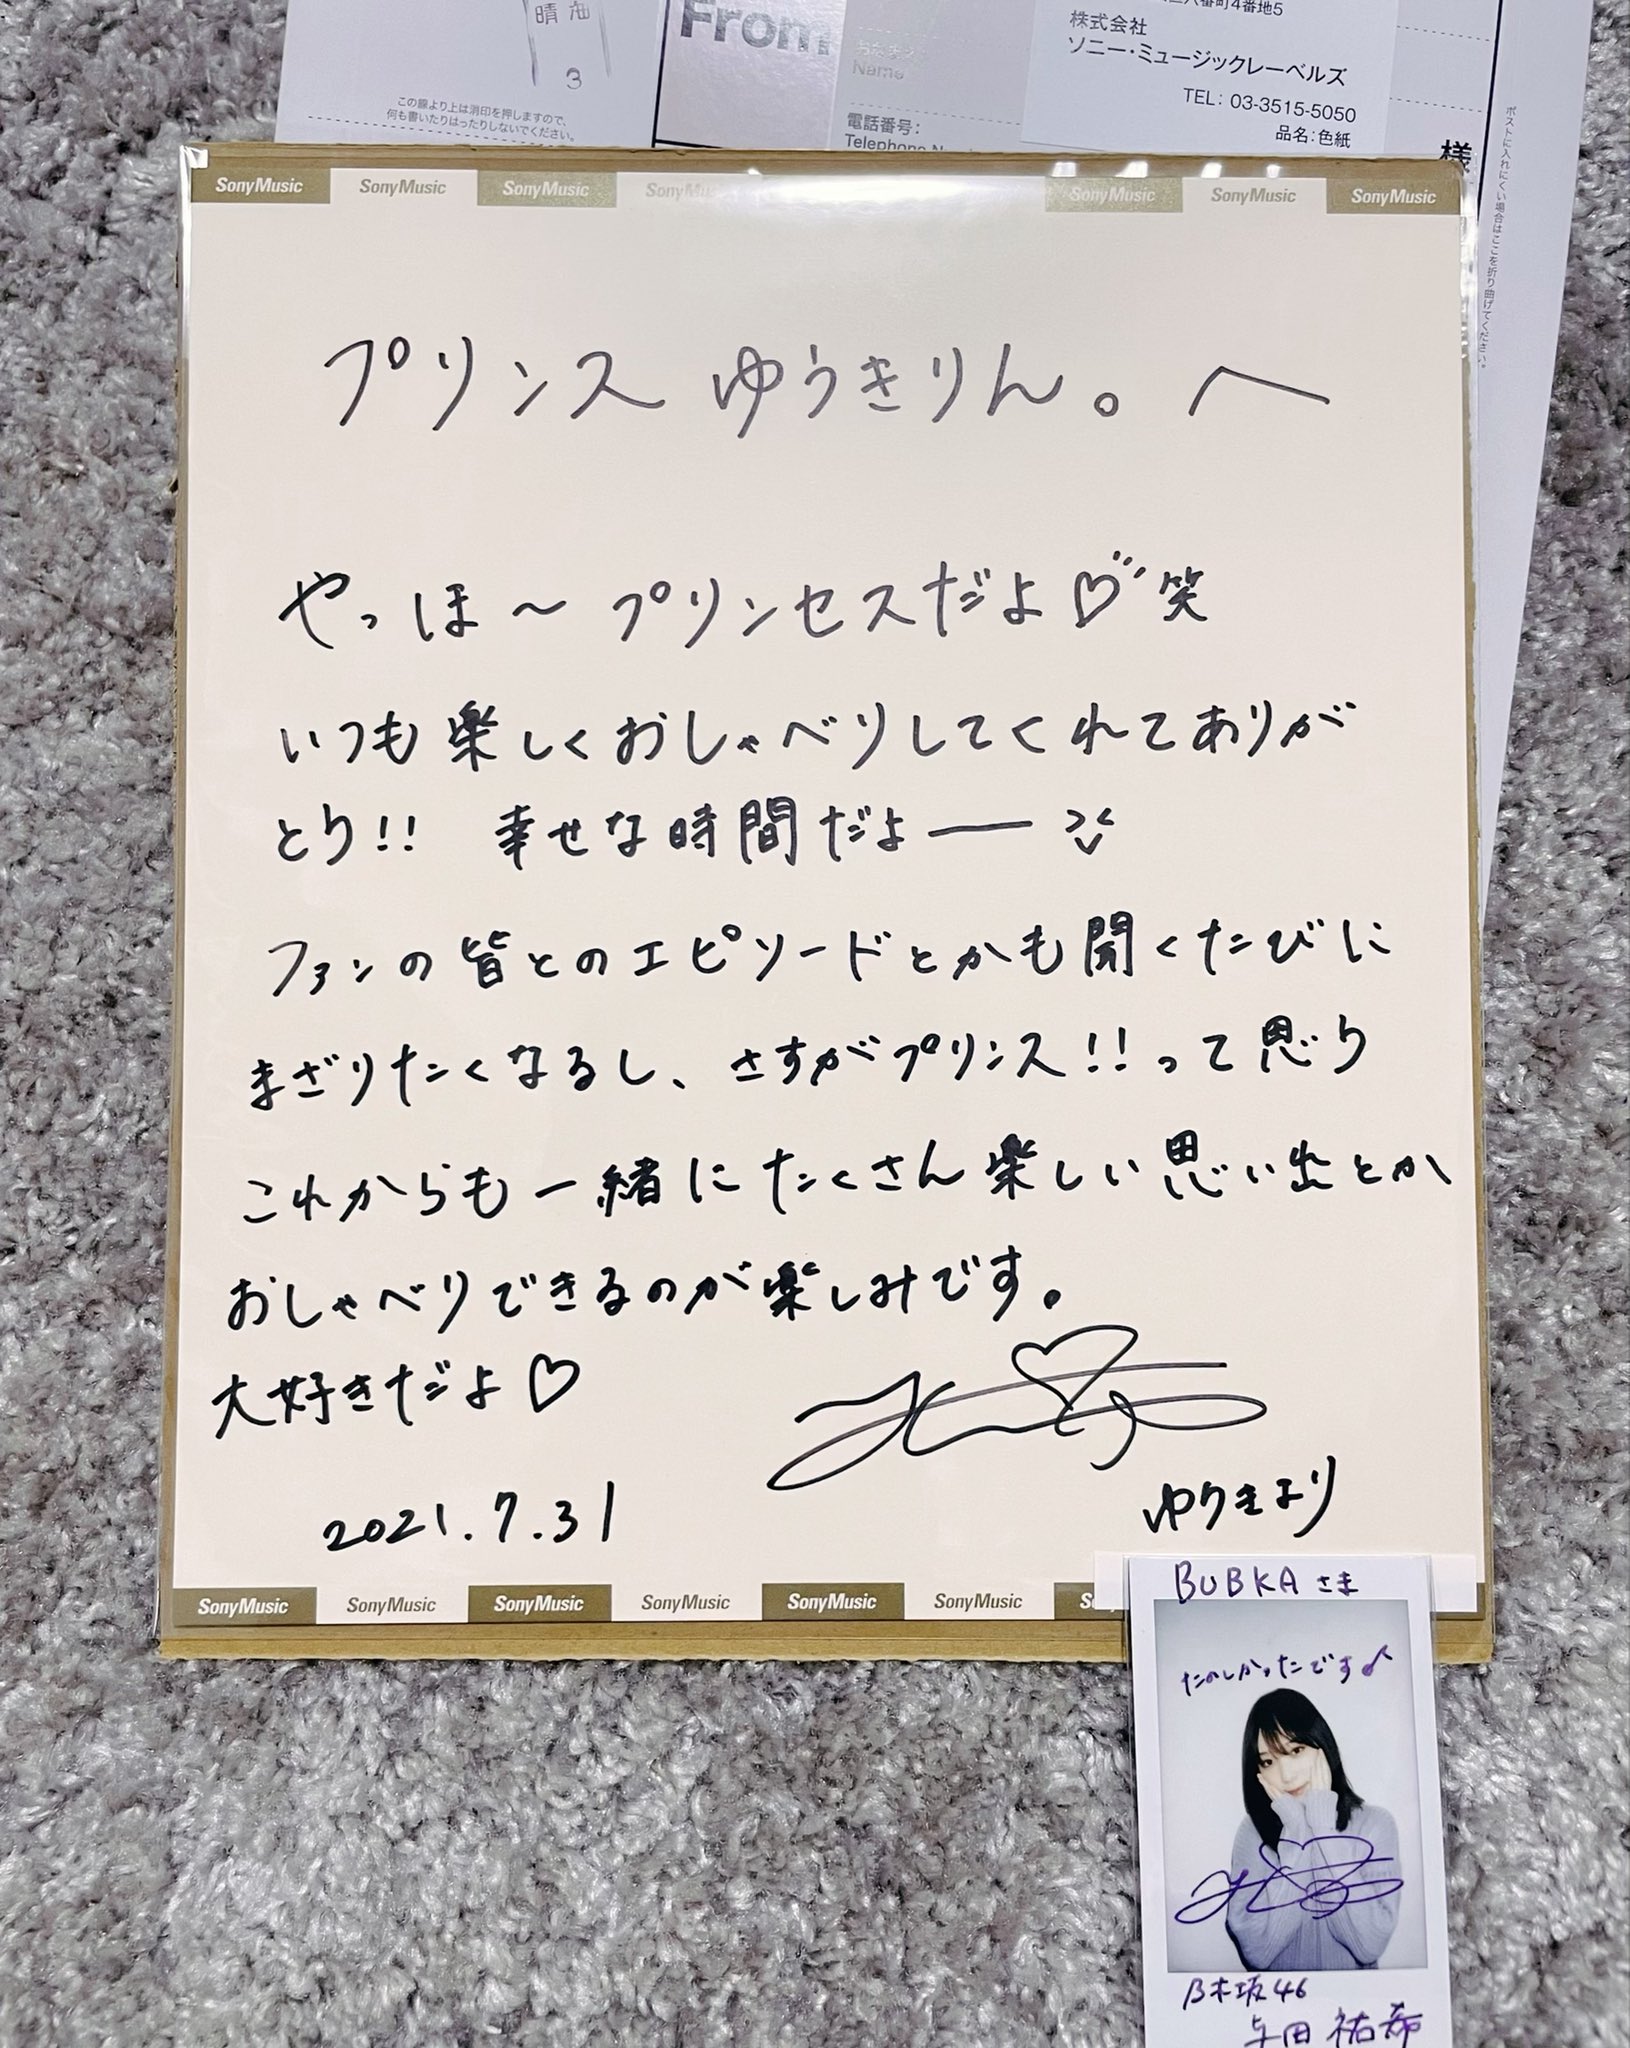 晴海
3
この線より上は消印を押しますので、
何も書いたりはったりしないでください。
From
おなまえ
Name
電話番号:
Telephone
八番町4番地5
株式会社
ソニー・ミュージックレーベルズ
TEL: 03-3515-5050
品名:色紙
様
ポストに入れにくい場合はここを折り曲げてください。
SonyMusic SonyMusic SonyMusic SonyMusic SonyMusic SonyMusic SonyMusic
プリンス ゆうきりん。へ
やっほ〜プリンセスだよ♡笑
いつも楽しくおしゃべりしてくれてありが
とう!! 幸せな時間だよー
ファンの皆とのエピソードとかも聞くたびに
まざりたくなるし、さすがプリンス!!って思う
これからも一緒にたくさん楽しい思い出とか
おしゃべりできるのが楽しみです。
大好きだよ♡
2021.7.31
ゆうきより
SonyMusic SonyMusic SonyMusic SonyMusic SonyMusic SonyMusic
BUBKAさま
たのしかったです♪
乃木坂46
与田祐希